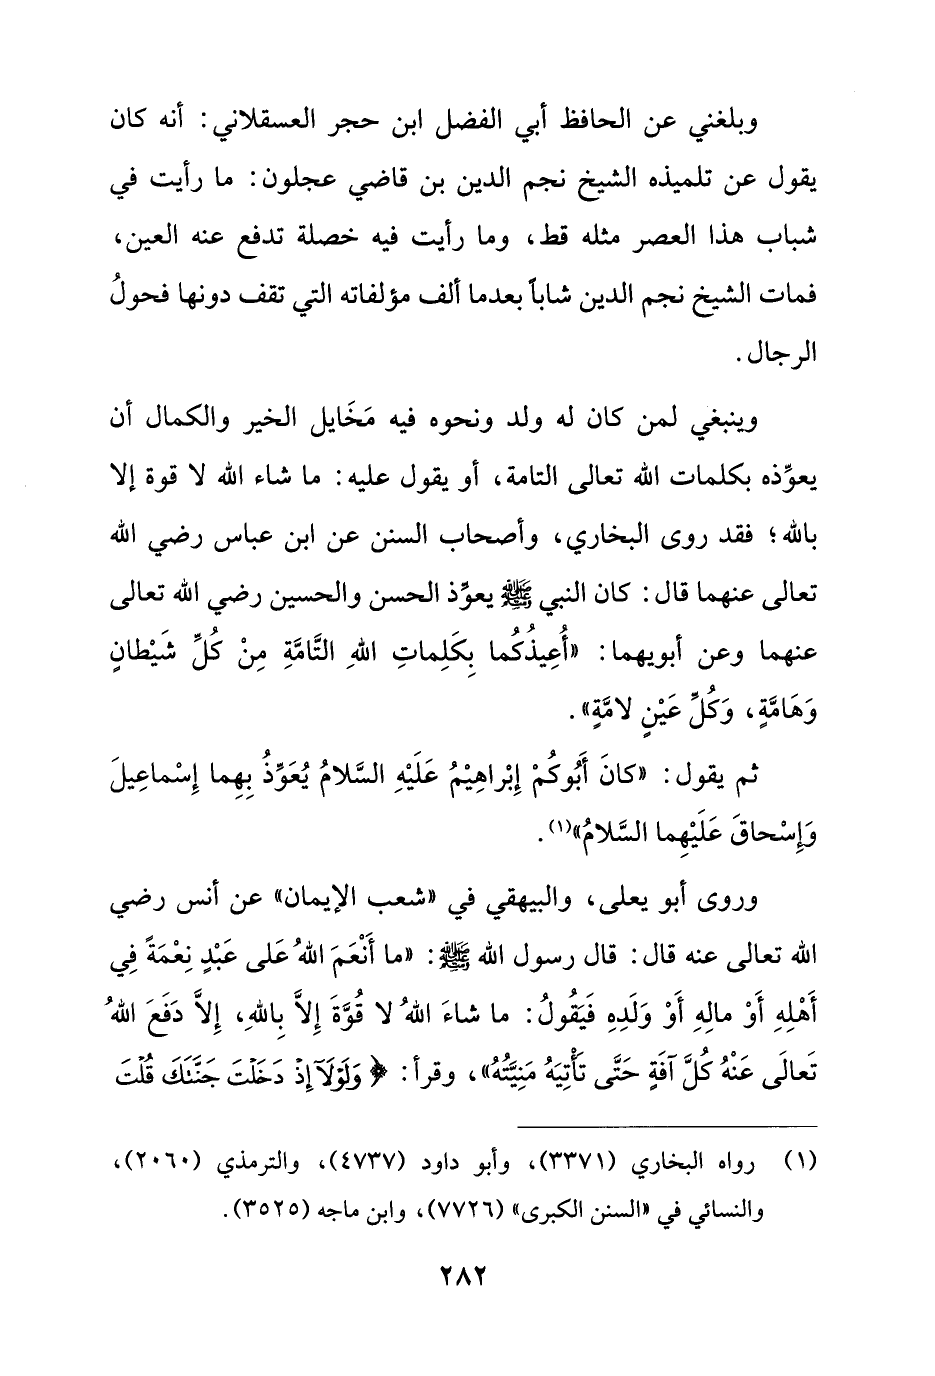 وبلغني عن الحافظ أبي الفضل ابن حجر العسقلاني: أنه كان
يقول عن تلميذه الشيخ نجم الدين بن قاضي عجلون: ما رأيت في
شباب هذا العصر مثله قط، وما رأيت فيه خصلة تدفع عنه العين،
فمات الشيخ نجم الدين شاباً بعدما ألف مؤلفاته التي تقف دونها فحولُ
الرجال.
وينبغي لمن كان له ولد ونحوه فيه مَخَايل الخير والكمال أن
يعوِّذه بكلمات الله تعالى التامة، أو يقول عليه: ما شاء الله لا قوة إلا
بالله؛ فقد روى البخاري، وأصحاب السنن عن ابن عباس رضي الله
تعالى عنهما قال: كان النبي ﷺ يعوِّذ الحسن والحسين رضي الله تعالى
عنهما وعن أبويهما: «أُعِيذُكُما بِكَلِماتِ اللهِ التَّامَّةِ مِنْ كُلِّ شَيْطانٍ
وَهَامَّةٍ، وَكُلِّ عَيْنٍ لامَّةٍ».
ثم يقول: «كانَ أَبُوكُمْ إِبْراهِيْمُ عَلَيْهِ السَّلامُ يُعَوِّذُ بِهِما إِسْماعِيلَ
وَإِسْحاقَ عَلَيْهِما السَّلامُ»(١).
وروى أبو يعلى، والبيهقي في «شعب الإيمان» عن أنس رضي
الله تعالى عنه قال: قال رسول الله ﷺ: «ما أَنْعَمَ اللهُ عَلى عَبْدٍ نِعْمَةً فِي
أَهْلِهِ أَوْ مالِهِ أَوْ وَلَدِهِ فَيَقُولُ: ما شاءَ اللهُ لا قُوَّةَ إِلاَّ بِاللهِ، إِلاَّ دَفَعَ اللهُ
تَعالَى عَنْهُ كُلَّ آفَةٍ حَتَّى تَأْتِيَهُ مَنِيَّتُهُ»، وقرأ: ﴿وَلَوْلَآ إِذْ دَخَلْتَ جَنَّتَكَ قُلْتَ
(١) رواه البخاري (٣٣٧١)، وأبو داود (٤٧٣٧)، والترمذي (٢٠٦٠)،
والنسائي في «السنن الكبرى» (٧٧٢٦)، وابن ماجه (٣٥٢٥).
٢٨٢